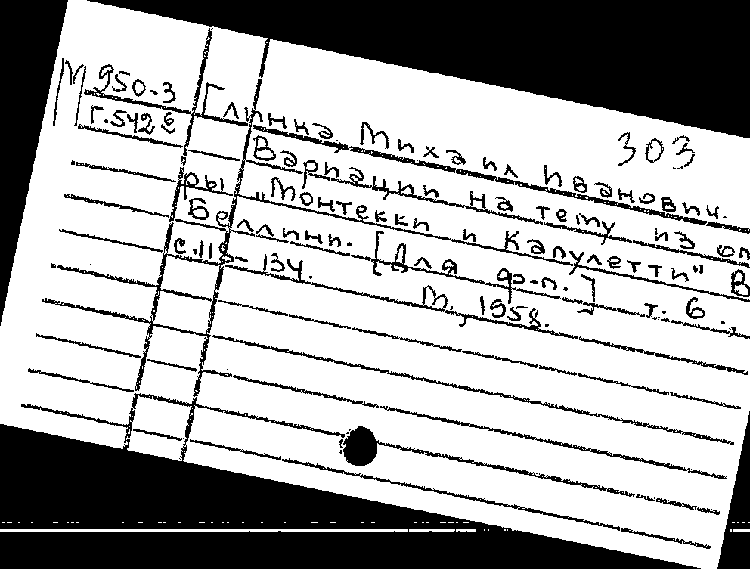 М 950-3
Г.542 б
303
Глинка, Михаил Иванович.
Вариации на тему из оп
ры „Монтекки и Капулетти" В
Беллини. [Для ф-п.] т. 6.,
с.118-134. М., 1958.